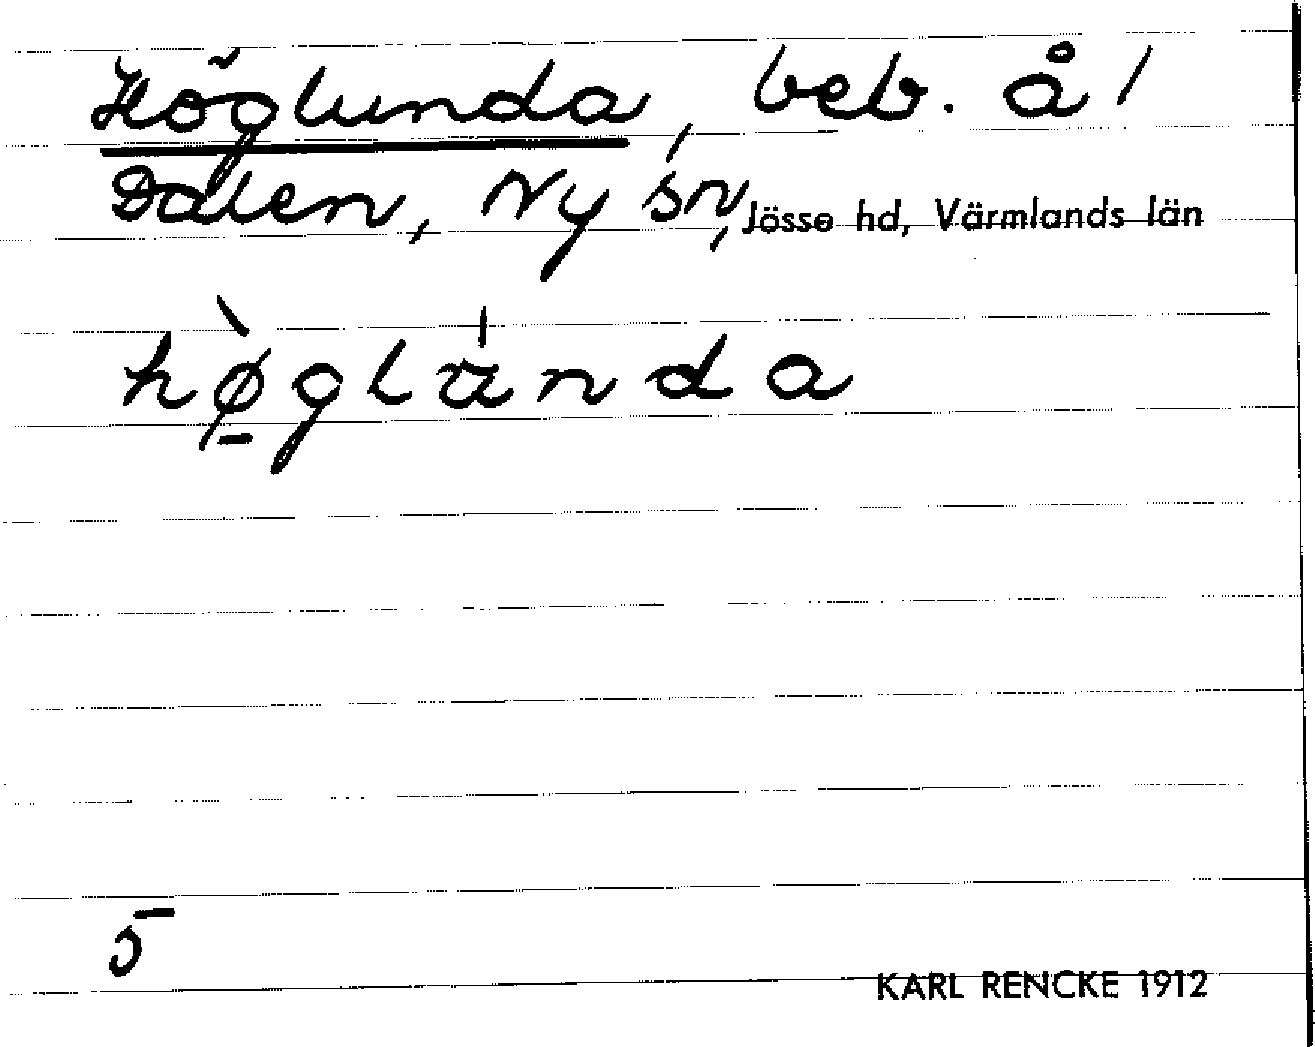 Höglunda, beb. å /
Dalen, Ny sn, Jösse hd, Värmlands län
hø̠̀glӓnda
5
KARL RENCKE 1912